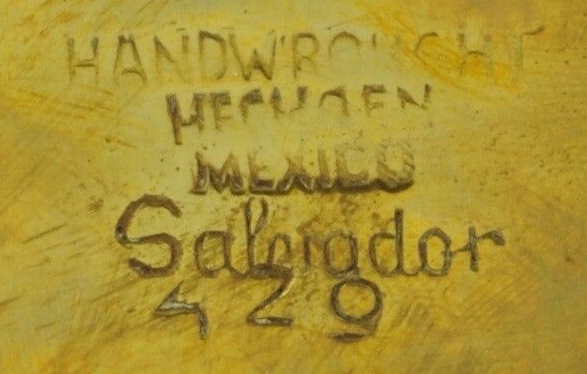 HANDWROUGHT
HECHO EN
MEXICO
Salvador
429